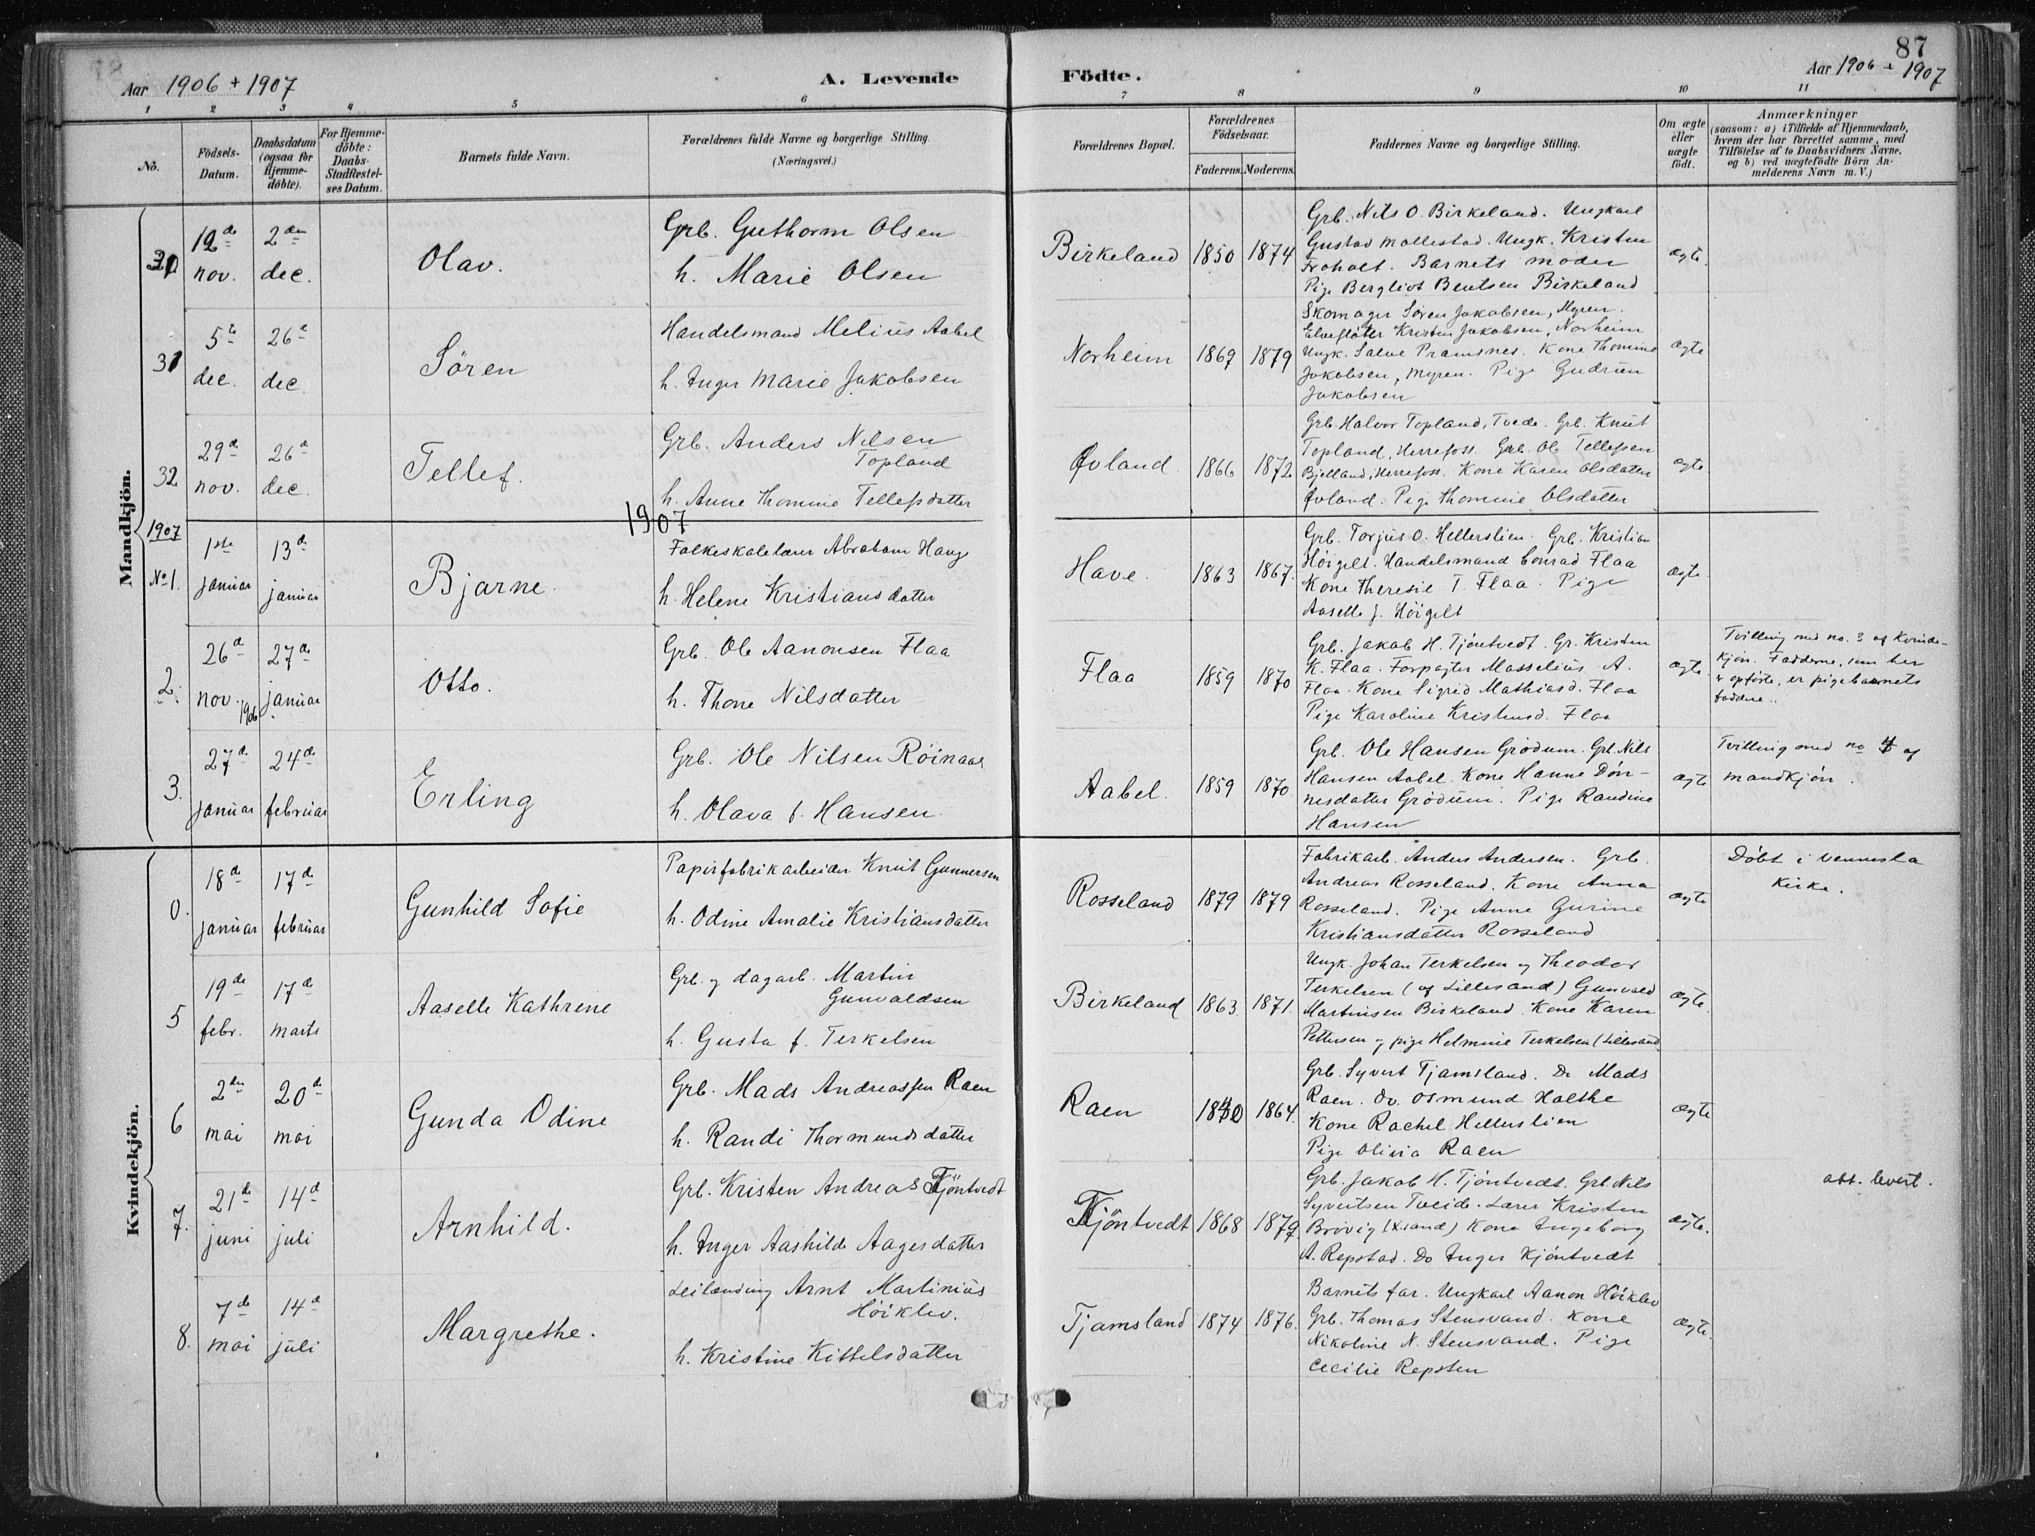 87
Aar 1906 + 1907
A. Levende
Födte.
Aar 1906 + 1907
1 2 3 4 5 6 7 8 9 10 11
No.
Födsels-Datum.
Daabsdatum (ogsaa for Hjemme-döbte).
For Hjemme-döbte: Daabs-Stadfæstel-ses Datum.
Barnets fulde Navn.
Forældrenes fulde Navne og borgerlige Stilling. (Næringsvei.)
Forældrenes Bopæl.
Forældrenes Födselsaar.
Faderens. Moderens.
Faddernes Navne og borgerlige Stilling.
Om ægte eller uægte födt.
Anmærkninger
(saasom: a) i Tilfælde af Hjemmedaab,
hvem der har forrettet samme, med
Tilföielse af to Daabsvidners Navne,
og b) ved uægtefödte Börn An-
melderens Navn m. V.)
Mandkjön.
12de nov.
2den dec.
Olav.
Grb. Guthorm Olsen
h. Marie Olsen
Birkeland 1850 1874
Grb. Nils O. Birkeland. Ungkarl
Gustav Mollestad. Ungk. Kristen
Froholt. Barnets moder
Pige Bergliot Bentsen Birkeland
ægte.
31
5te dec.
26de dec
Sören
Handelsmand Melius Aabel
h. Inger Marie Jakobsen
Norheim 1869 1879
Skomager Sören Jakobsen, Myren.
Elvefløter Kristen Jakobsen, Norheim
Ungk. Salve Pramsnes. Kone Thomine
Jakobsen, Myren. Pige Gudrun
Jakobsen
ægte
32
29de nov.
26de dec.
Tellef.
Grb. Anders Nilsen
Topland
h. Anne Thomine Tellefsdatter
Øvland. 1866 1872
Grb. Halvor Topland, Tvede. Grb. Knut
Topland, Herrefoss. Grb. Ole Tellefsen
Bjelland, Herrefoss. Kone Karen Olsdatter
Øvland. Pige Thomine Olsdatter
ægte
1907
1907
No 1.
1ste januar
13de januar
Bjarne.
Folkeskolelærer Abraham Hauge
h. Helene Kristiansdatter
Have. 1863 1867.
Grb. Torjus O. Hellerslien. Grb. Kristian
Höigelt. Handelsmand Conrad Flaa
Kone Theresie T. Flaa. Pige
Aaselle J. Höigelt
ægte.
2.
26de nov. 1906
27de januar
Otto.
Grb. Ole Aanonsen Flaa
h. Thone Nilsdatter
Flaa 1859 1870
Grb. Jakob H. Tjöntvedt. Gr. Kristen
K. Flaa. Forpagter Masselius A.
Flaa. Kone Sigrid Mathiasd. Flaa
Pige Karoline Kristensd. Flaa
ægte
Tvilling med no. 3 af Kvinde-
kjön. Fadderne, som her
er opførte, er pigebarnets
faddere.
3.
27de januar
24de februar
Erling
Grb. Ole Nilsen Röinaas
h. Olava f. Hansen.
Aabel. 1859 1870.
Grb. Ole Hansen Grödum. Grb. Nils
Hansen Aabel. Kone Hanne Døn-
nesdatter Grödum. Pige Randine
Hansen
ægte
Tvilling med no 4 af
mandkjön.
Kvindekjön.
0.
18de januar
17de februar
Gunhild Sofie
Papirfabrikarbeider Knut Gunnersen
h. Odine Amalie Kristiansdatter
Rosseland 1879 1879
Fabrikarb. Anders Andersen. Grb.
Andreas Rosseland. Kone Anna
Rosseland. Pige Anne Gurine
Kristiansdatter Rosseland
ægte
Döbt i Vennesla
kirke.
5
19de febr.
17de marts
Aaselle Kathrine
Grb. og dagarb. Martin
Gunvaldsen
h. Gusta f. Terkelsen
Birkeland 1863 1871.
Ungk. Johan Terkelsen og Theodor
Terkelsen (af Lillesand) Gunvald
Martinsen Birkeland. Kone Karen
Pettersen og pige Helmine Terkelsen (Lillesand
ægte.
6
2den mai
20de mai
Gunda Odine
Grb. Mads Andreassen Raen
h. Randi Thormundsdatter
Raen 1864.
Grb. Syvert Tjamsland. Do Mads
Raen. Do. Osmund Holthe
Kone Rachel Hellerslien
Pige Olivia Raen
ægte
7.
21de juni
14de juli
Arnhild.
Grb. Kristen Andreas Kjöntvedt
h. Inger Aashilde Aagesdatter
Kjöntvedt 1868 1879.
Grb. Jakob H. Tjöntvedt. Grb. Nils
Syvertsen Tveide. Lærer Kristen
Brövig (X.sand) Kone Ingeborg
A. Repstad. Do Inger Kjöntvedt
ægte.
att. levert.
8.
7de mai
14de juli
Margrethe.
Leilænding Arnt Martinius
Höiklev.
h. Kristine Kittelsdatter
Tjamsland 1874 1876.
Barnets far. Ungkarl Aanon Höiklev
Grb. Thomas Stensvand. Kone
Nikoline N. Stensvand. Pige
Cecilie Repsten
ægte.